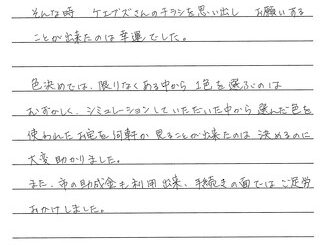 そんな時 ケエブズさんのチラシを思い出し お願いする
ことが出来たのは幸運でした。
色決めでは、限りなくある中から1色を選ぶのは
むずかしく、シミュレーションしていただいた中から選んだ色を
使われたお宅を何軒か見ることが出来たのは決めるのに
大変助かりました。
また、市の助成金も利用出来、手続きの面ではご足労
おかけしました。